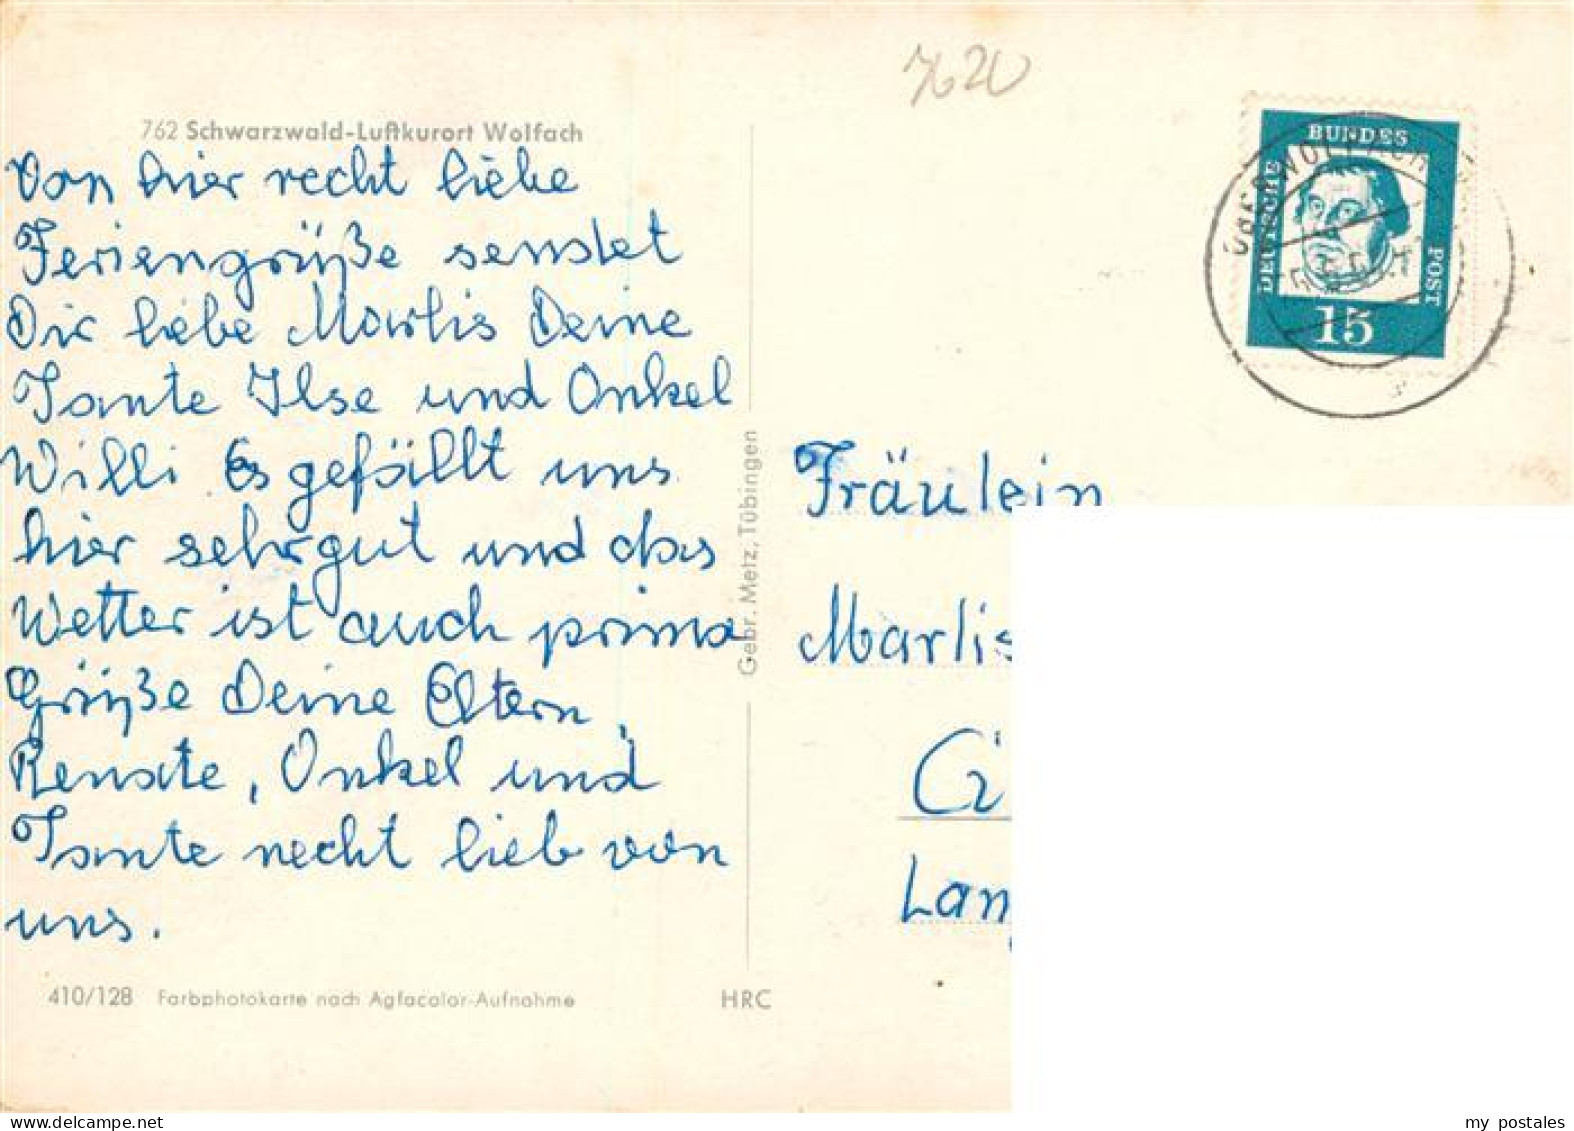 7620
762 Schwarzwald-Luftkurort Wolfach
Von hier recht liebe
Feriengrüße sendet
Dir liebe Marlis Deine
Tante Ilse und Onkel
Willi Es gefällt uns
hier sehr gut und das
Wetter ist auch prima
Grüße Deine Eltern,
Renate, Onkel und
Tante recht lieb von
uns.
410/128 Farbphotokarte nach Agfacolor-Aufnahme
HRC
Gebr. Metz, Tübingen
DEUTSCHE BUNDES POST
15
OBERWOLFACH
Fräulein
Marlis
my postales